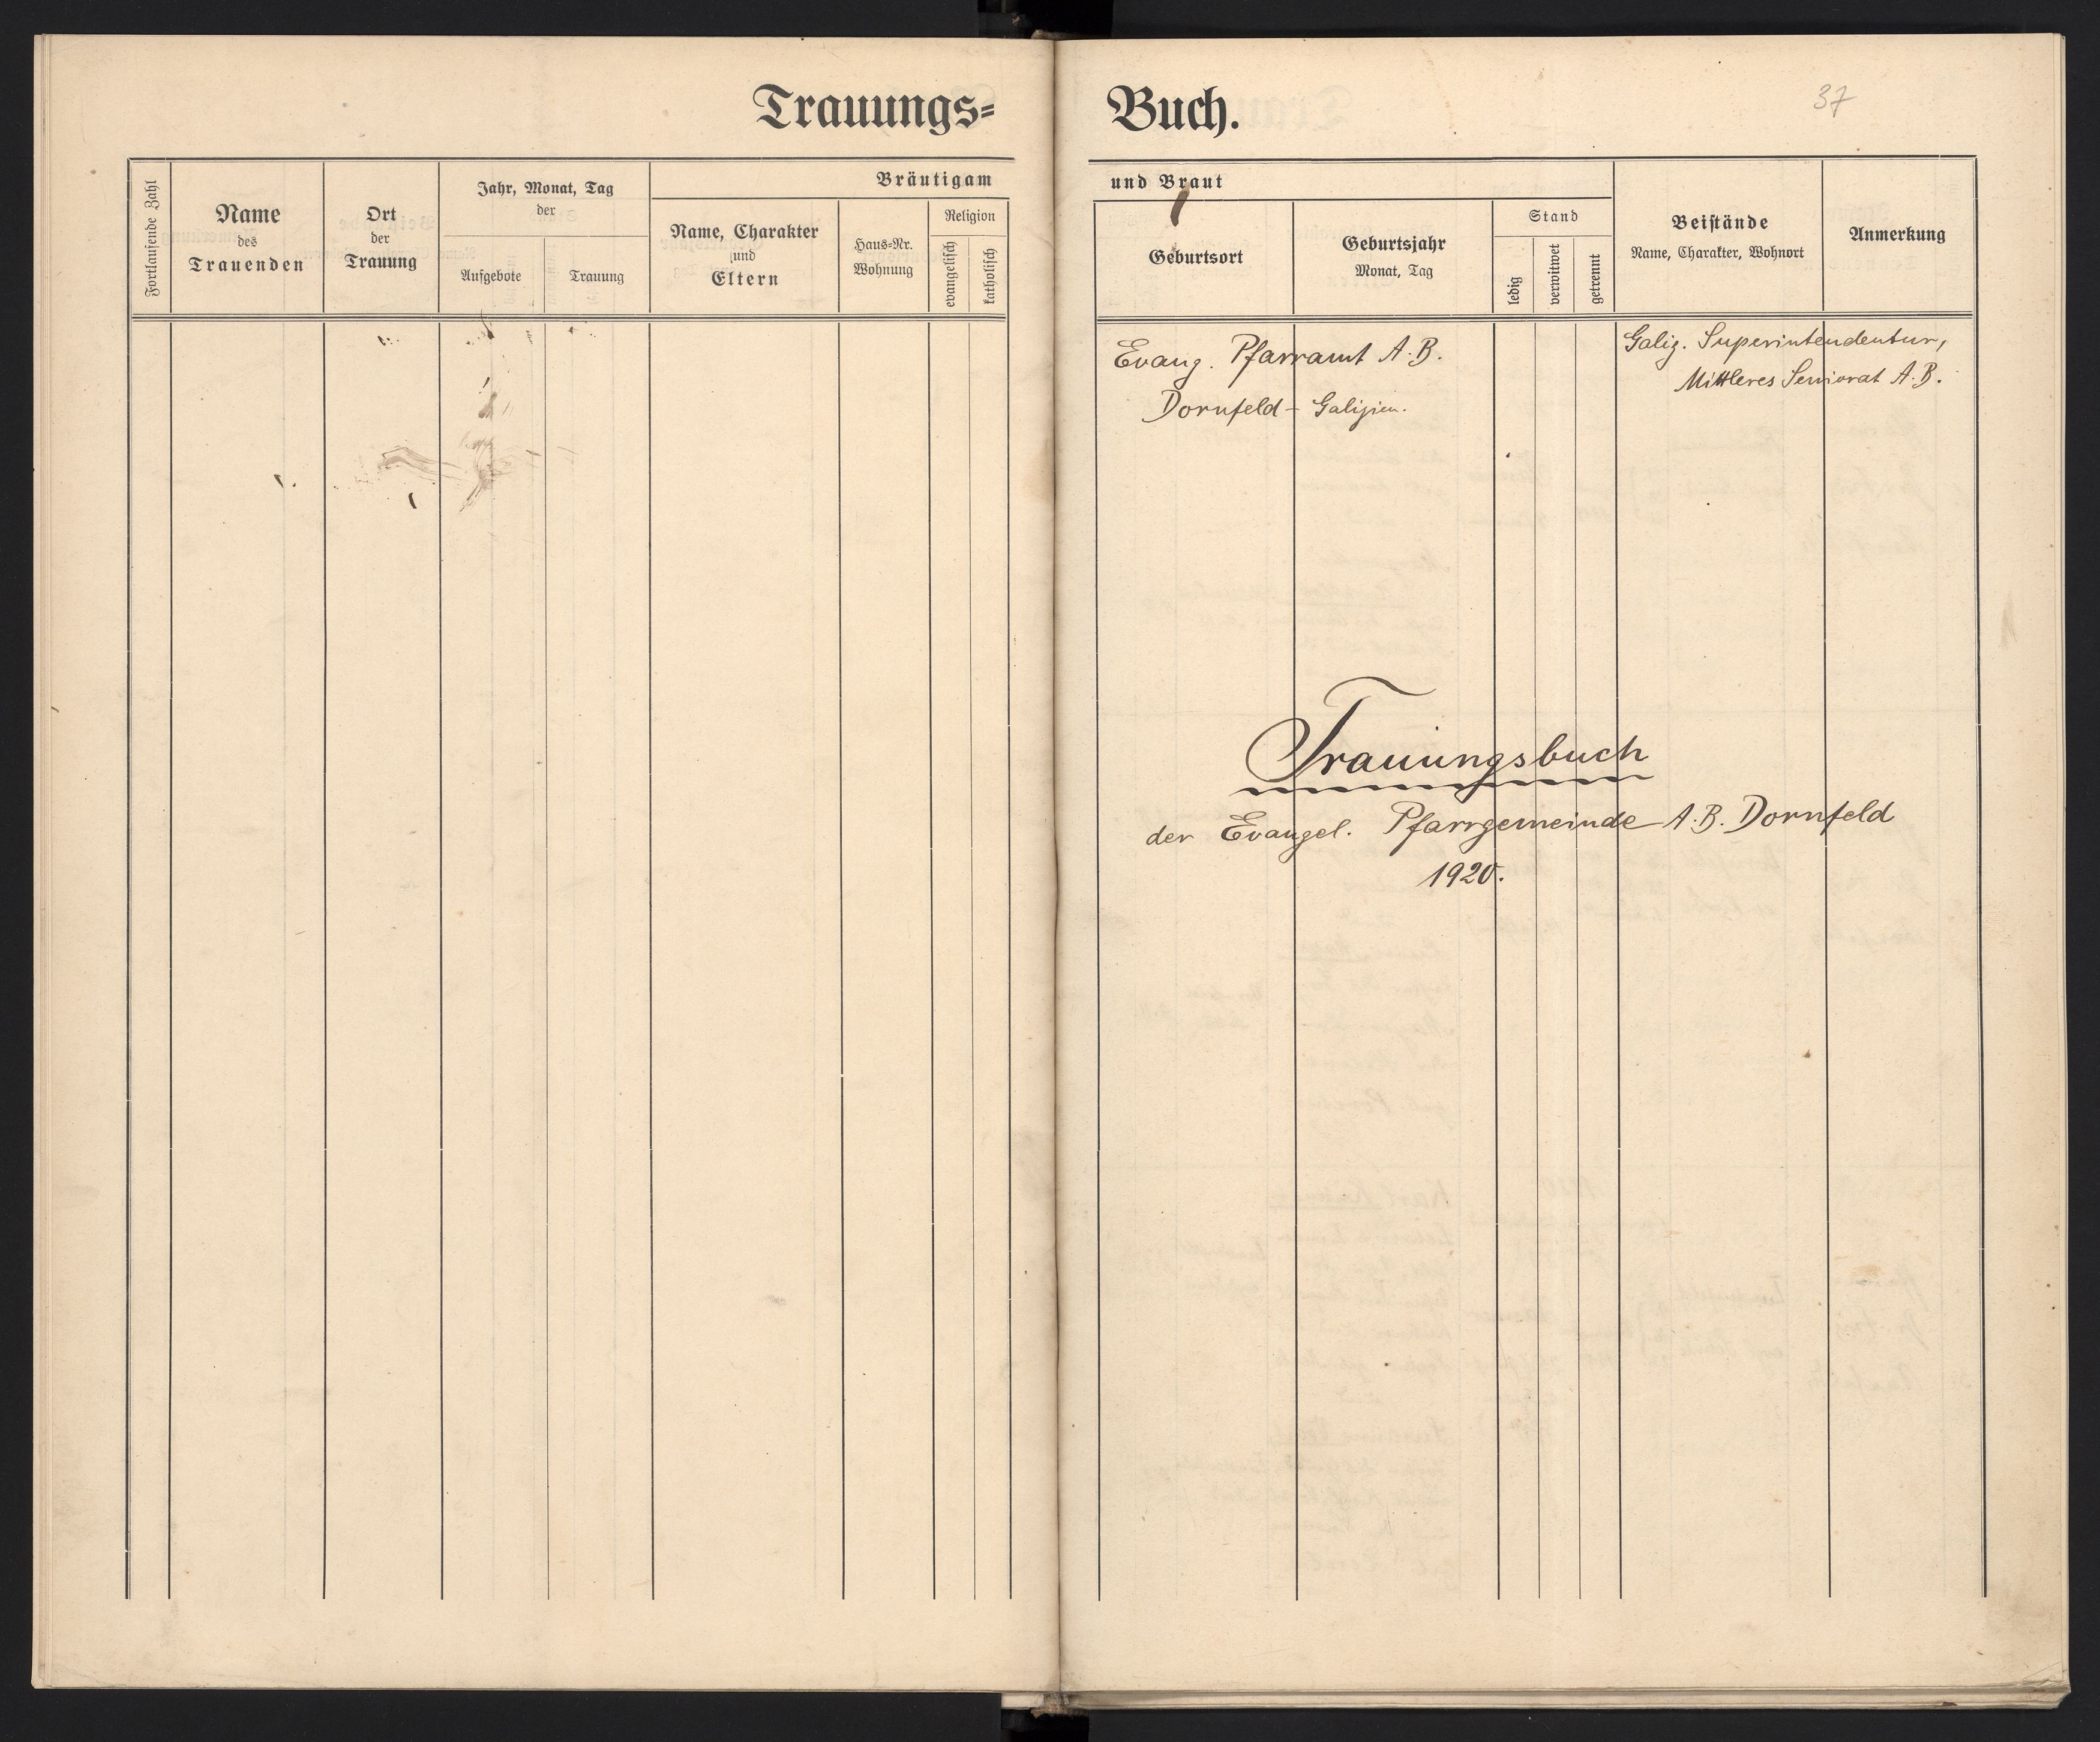 Trauungs=
Buch.
37
Fortlaufende Zahl
Name
des
Trauenden
Ort
der
Trauung
Jahr, Monat, Tag
der
Aufgebote
Trauung
Bräutigam
Name, Charakter
und
Eltern
Haus=Nr.
Wohnung
Religion
evangelisch
katholisch
und Braut
Geburtsort
Geburtsjahr
Monat, Tag
Stand
ledig
verwitwet
getrennt
Beistände
Name, Charakter, Wohnort
Anmerkung
Evang. Pfarramt A.B.
Dornfeld - Galizien.
Galiz. Superintendentur,
Mittleres Seniorat A.B.
Trauungsbuch
der Evangel. Pfarrgemeinde A.B. Dornfeld
1920.